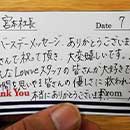 宮本社長
Date 7
バースデーメッセージ ありがとうございま
さんで祝って頂き、大変嬉しいです。
なLoweスタッフの皆さんが大好きで
皆さんの優しさに救われ
ank You 本当にありがとうございます。 From